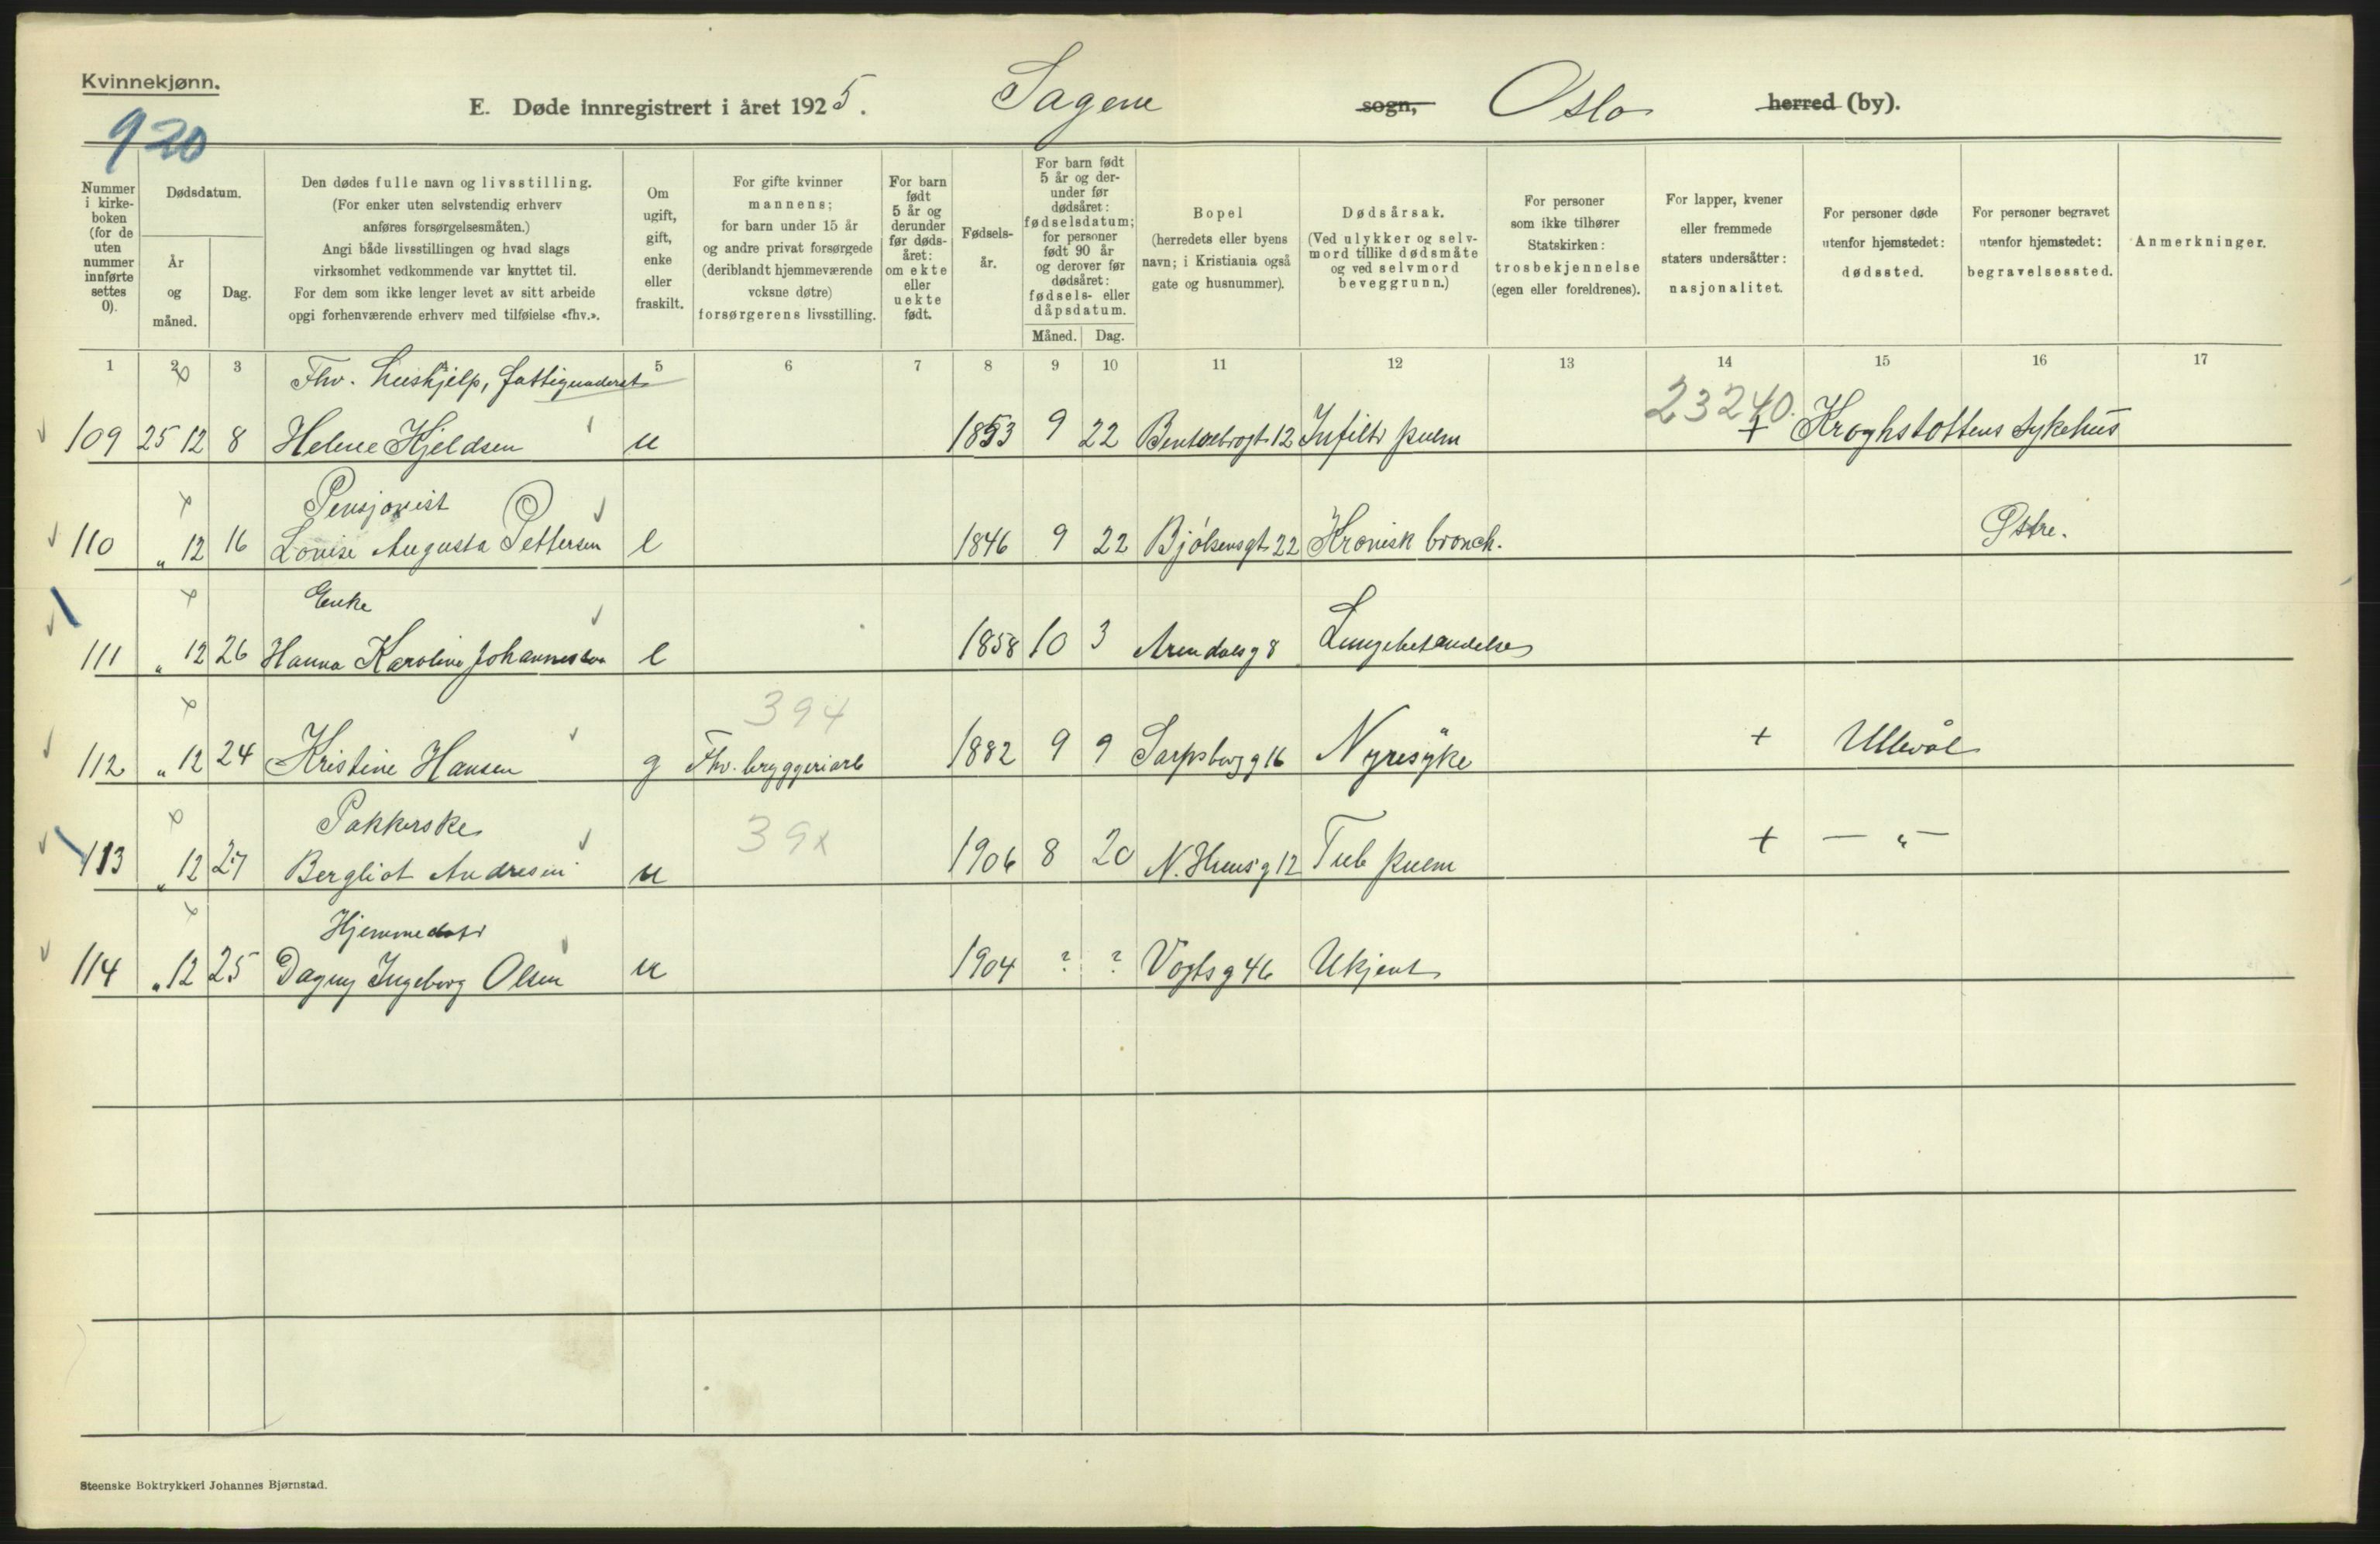 Kvinnekjønn.
E. Døde innregistrert i året 1925. Sagene sogn, Oslo herred (by).
920
Nummer i kirkeboken (for de uten nummer innførte settes 0).
Dødsdatum.
År og måned.
Dag.
Den dødes fulle navn og livsstilling.
(For enker uten selvstendig erhverv
anføres forsørgelsesmåten.)
Angi både livsstillingen og hvad slags
virksomhet vedkommende var knyttet til.
For dem som ikke lenger levet av sitt arbeide
opgi forhenværende erhverv med tilføielse «fhv.».
Om ugift, gift, enke eller fraskilt.
For gifte kvinner
mannens;
for barn under 15 år
og andre privat forsørgede
(deriblandt hjemmeværende
voksne døtre)
forsørgerens livsstilling.
For barn født 5 år og derunder før dødsåret: om ekte eller uekte født.
Fødselsår.
For barn født 5 år og derunder før dødsåret: fødselsdatum; for personer født 90 år og derover før dødsåret: fødsels- eller dåpsdatum.
Måned. Dag.
Bopel
(herredets eller byens
navn; i Kristiania også
gate og husnummer).
Dødsårsak.
(Ved ulykker og selvmord tillike dødsmåte
og ved selvmord
beveggrunn.)
For personer
som ikke tilhører
Statskirken:
trosbekjennelse
(egen eller foreldrenes).
For lapper, kvener
eller fremmede
staters undersåtter:
nasjonalitet.
For personer døde
utenfor hjemstedet:
dødssted.
For personer begravet
utenfor hjemstedet:
begravelsessted.
Anmerkninger.
1 2 3 5 6 7 8 9 10 11 12 13 14 15 16 17
Fhv. hushjelp, fattigunderst
23240.
109 25 12 8 Helene Kjeldsen u 1853 9 22 Bentsebrogt 12 Infiltr pulm + Kroghstøttens sykehus
Pensjonist
110 " 12 16 Lovise Augusta Pettersen e 1846 9 22 Bjølsensgt 22 Kronisk bronch. Østre.
Enke
111 " 12 26 Hanna Karoline Johannessen e 1858 10 3 Arendalsg 8 Lungebetændelse
394
112 " 12 24 Kristine Hansen g Fhv. bryggeriarb 1882 9 9 Sarpsborgg 16 Nyresyke + Ullevål
Pakkerske
39x
113 " 12 27 Bergliot Andresen u 1906 8 20 12 Tub pulm + — " —
Hjemmedatr
114 " 12 25 Dagny Ingeborg Olsen u 1904 ? ? Vogtsg 46 Ukjent
Steenske Boktrykkeri Johannes Bjørnstad.